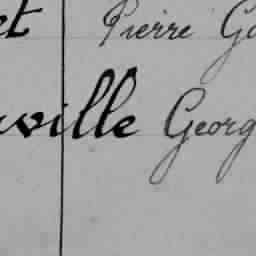 et Pierre Ga
ville Georg